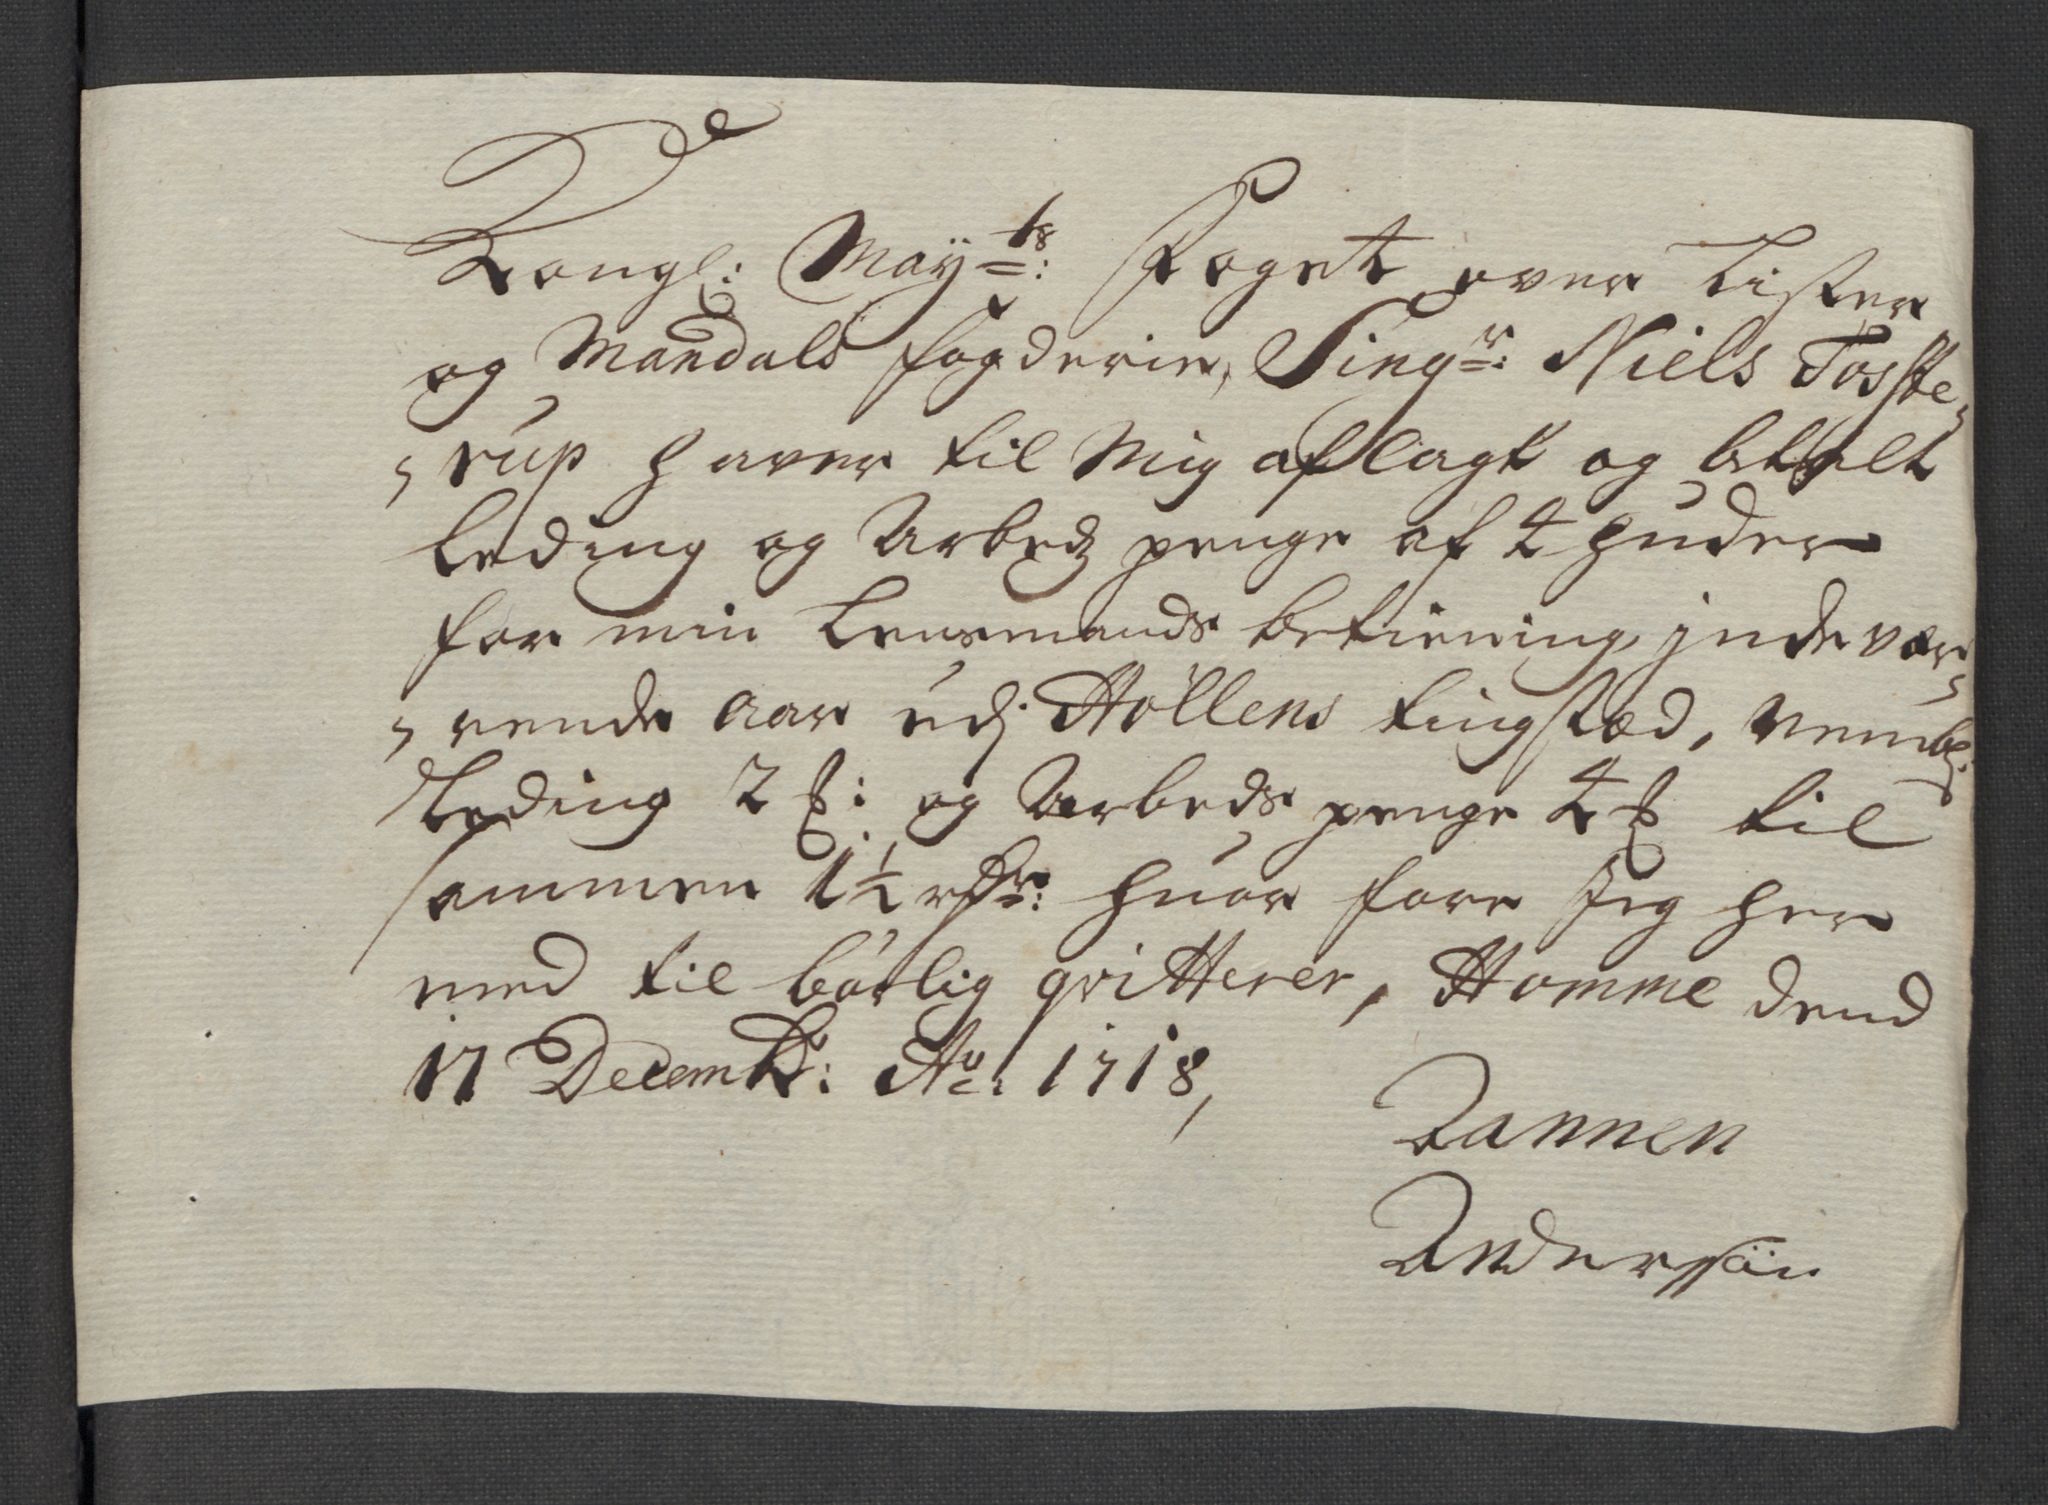 Kongl: Mayts: Foget over Lister
og Mandals fogderie, Singr: Niels Tosste-
-rup haver til Mig aflagt og betalt
leding og Arbedz penge af 4 huder
for min Lensmands betiening inde vær-
-rende aar udj Höllens tingsted, nembl:
Leding 2 ß: og Arbeds penge 4 ß til
sammen 1½ rdr: huor fore Jeg her
med til börlig qvitterer, Homme dend
17 Decembr: Ao: 1718,
Aannen
Anderssön